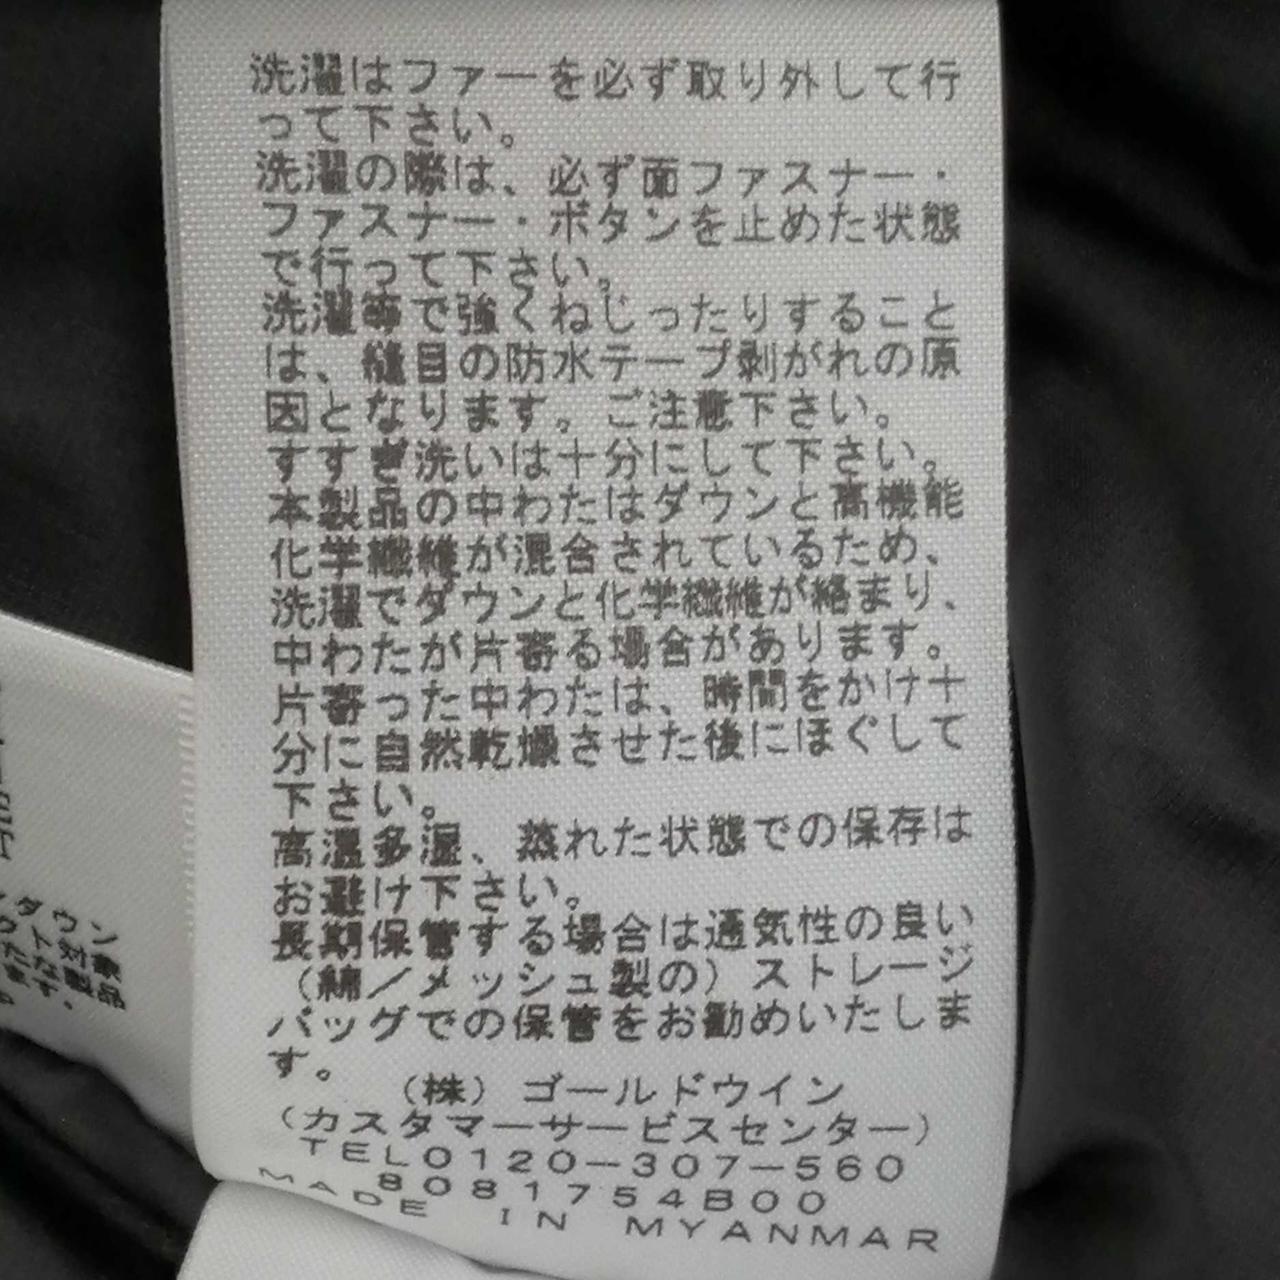 洗濯はファーを必ず取り外して行
って下さい。
洗濯の際は、必ず面ファスナー・
ファスナー・ボタンを止めた状態
で行って下さい。
洗濯等で強くねじったりすること
は、縫目の防水テープ剥がれの原
因となります。ご注意下さい。
すすぎ洗いは十分にして下さい。
本製品の中わたはダウンと高機能
化学繊維が混合されているため、
洗濯でダウンと化学繊維が絡まり、
中わたが片寄る場合があります。
片寄った中わたは、時間をかけ十
分に自然乾燥させた後にほぐして
下さい。
高温多湿、蒸れた状態での保存は
お避け下さい。
長期保管する場合は通気性の良い
(綿/メッシュ製の)ストレージ
バッグでの保管をお勧めいたしま
す。
(株)ゴールドウイン
(カスタマーサービスセンター)
TEL0120-307-560
8081754B00
MADE IN MYANMAR
ダウン
ト対象
たな製品
ます。